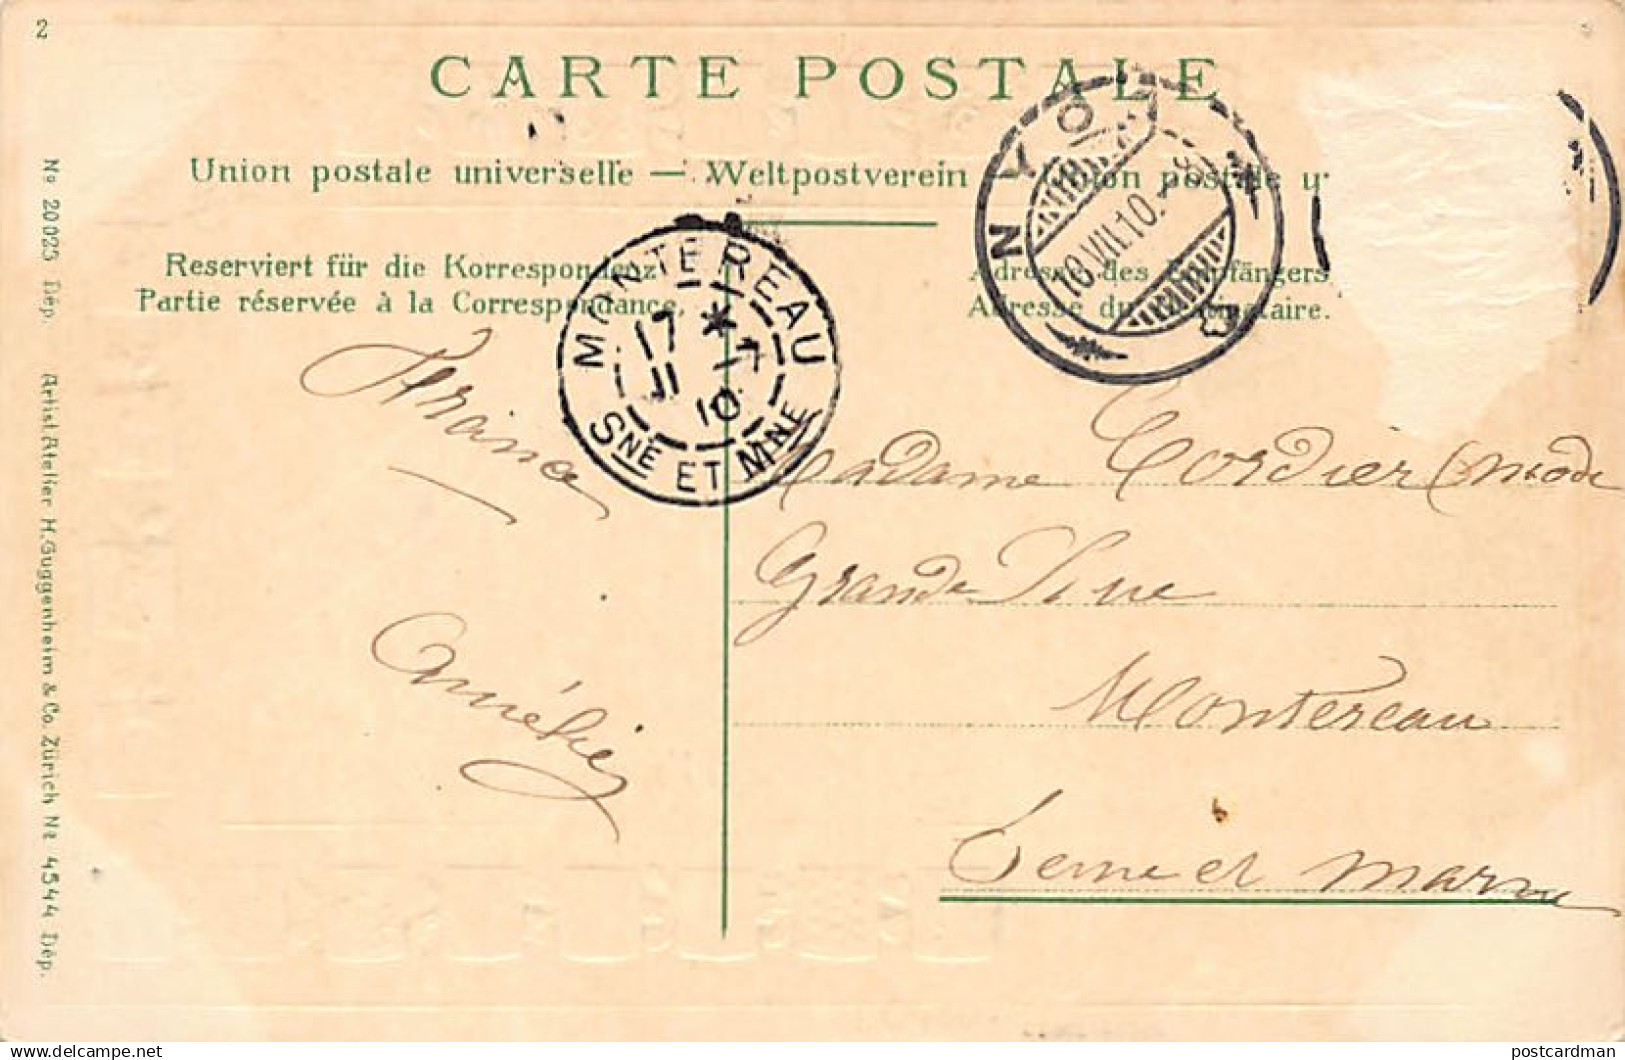 2
CARTE POSTALE
Union postale universelle — Weltpostverein — Union postale u
Reserviert für die Korrespondenz
Partie réservée à la Correspondance.
Adresse des Empfängers
Adresse du Destinataire.
NYON
10.VII.10.-8
MONTEREAU
17 *
11 -7
10
SNE ET MNE
France
Amélie
Madame Cordier (mode
Grande Rue
Montereau
Seine et Marne
No 20025 Dép. Artist. Atelier H. Guggenheim & Co. Zürich No 4544 Dép.
postcardman